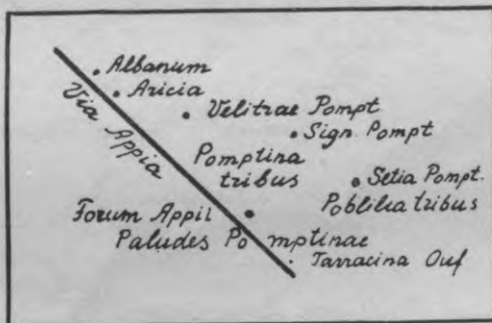 Albanum
Aricia
Via Appia
Velitrae Pompt
Sign. Pompt
Pomptina
tribus
Setia Pompt.
Poblilia tribus
Forum Appii
Paludes Po mptinae
Tarracina Ouf